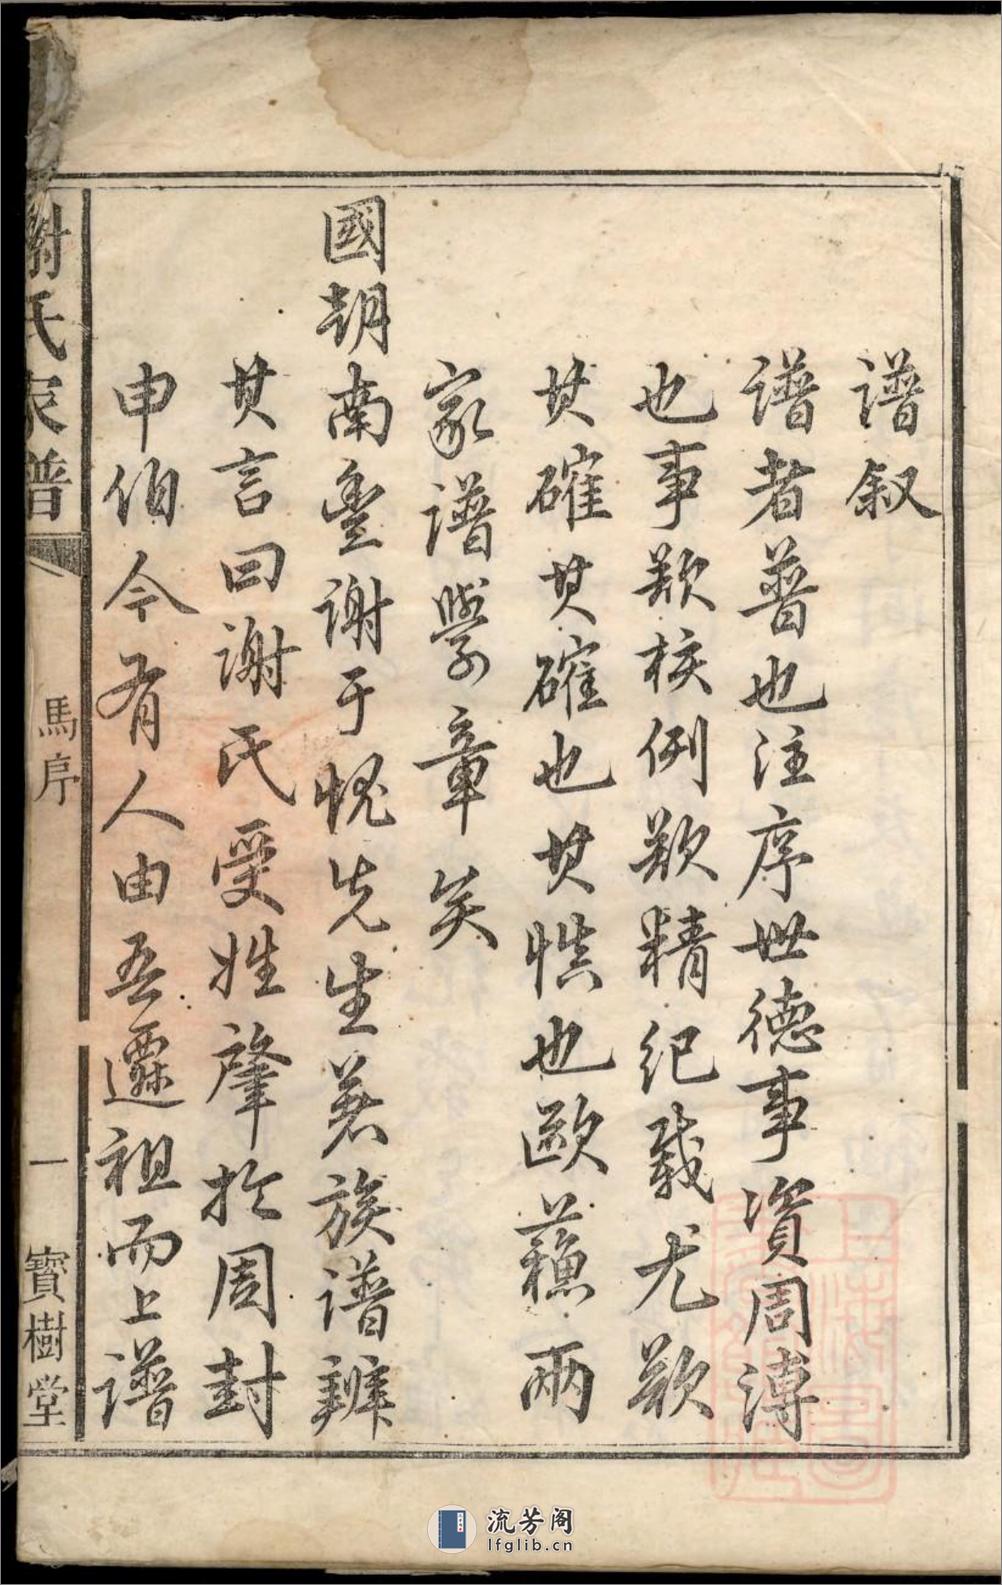 譜叙
譜者普也注序世德事資周溥
也事欵核例欵精紀載尤欵
其確其確也其慎也歐蘓兩
家譜學章矣
國朝南豐謝于愧先生著族譜辨
其言曰謝氏受姓肇於周封
申伯今有人由吾遷祖而上譜
謝氏家譜
馬序
一
寶樹堂
流芳阁
lfglib.cn